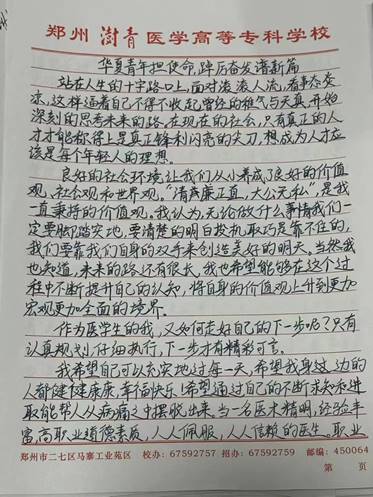 郑州 澍青 医学高等专科学校
华夏青年担使命,踔厉奋发谱新篇
站在人生的十字路口上,面对滚滚人流,看事态炎
凉,这样逼着自己不得不收起曾经的稚气与天真,开始
深刻的思考未来的路,在现在的社会,只有真正的人
才才能称得上是真正锋利闪亮的尖刀,想成为人才应
该是每个年轻人的理想。
良好的社会环境让我们从小养成了良好的价值
观、社会观和世界观。"清廉正直,大公无私",是我
一直秉持的价值观。我认为,无论做什么事情我们一
定要脚踏实地,要清楚的明白投机取巧是靠不住的,
我们要靠我们自身的双手来创造美好的明天,当然我
也知道,未来的路还有很长,我也希望能够在这个过
程中不断提升自己的认知,将自身的价值观上升到更加
宏观更加全面的境界。
作为医学生的我,又如何走好自己的下一步呢?只有
认真规划,仔细执行,下一步才有精彩可言。
我希望自己可以充实地过每一天,希望我身边的
人都健健康康,幸福快乐,希望通过自己的不断求知和进
取能帮人从病痛之中摆脱出来,当一名医术精明,经验丰
富,高职业道德素质,人人佩服,人人信赖的医生。职业
郑州市二七区马寨工业苑区 校办:67592757 招办:67592759 邮编:450064
第 页